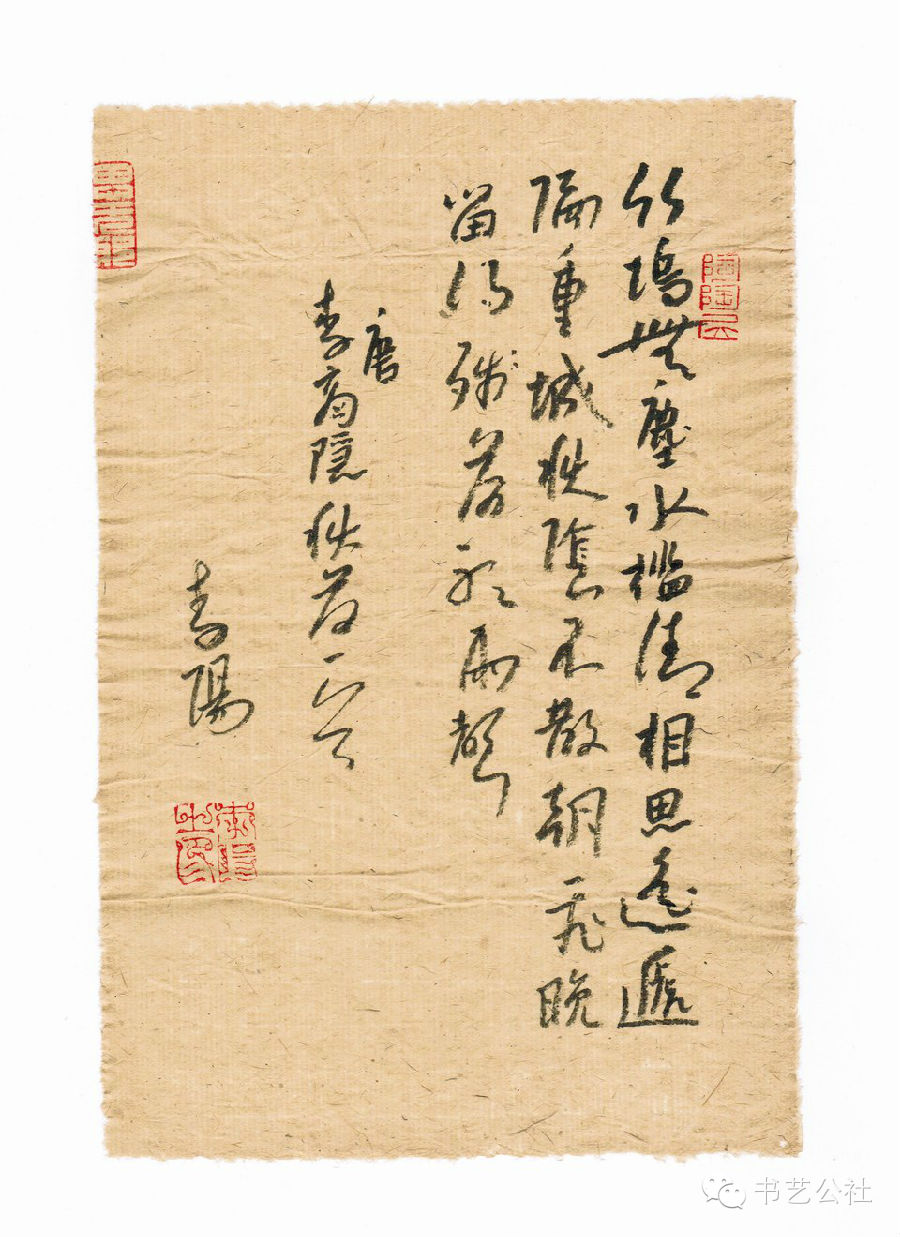 竹塢無塵水檻清相思遙遞
隔重城秋陰不散朝飛晚
留得殘荷聽雨聲
唐
李商隱秋荷一首
青陽
书艺公社